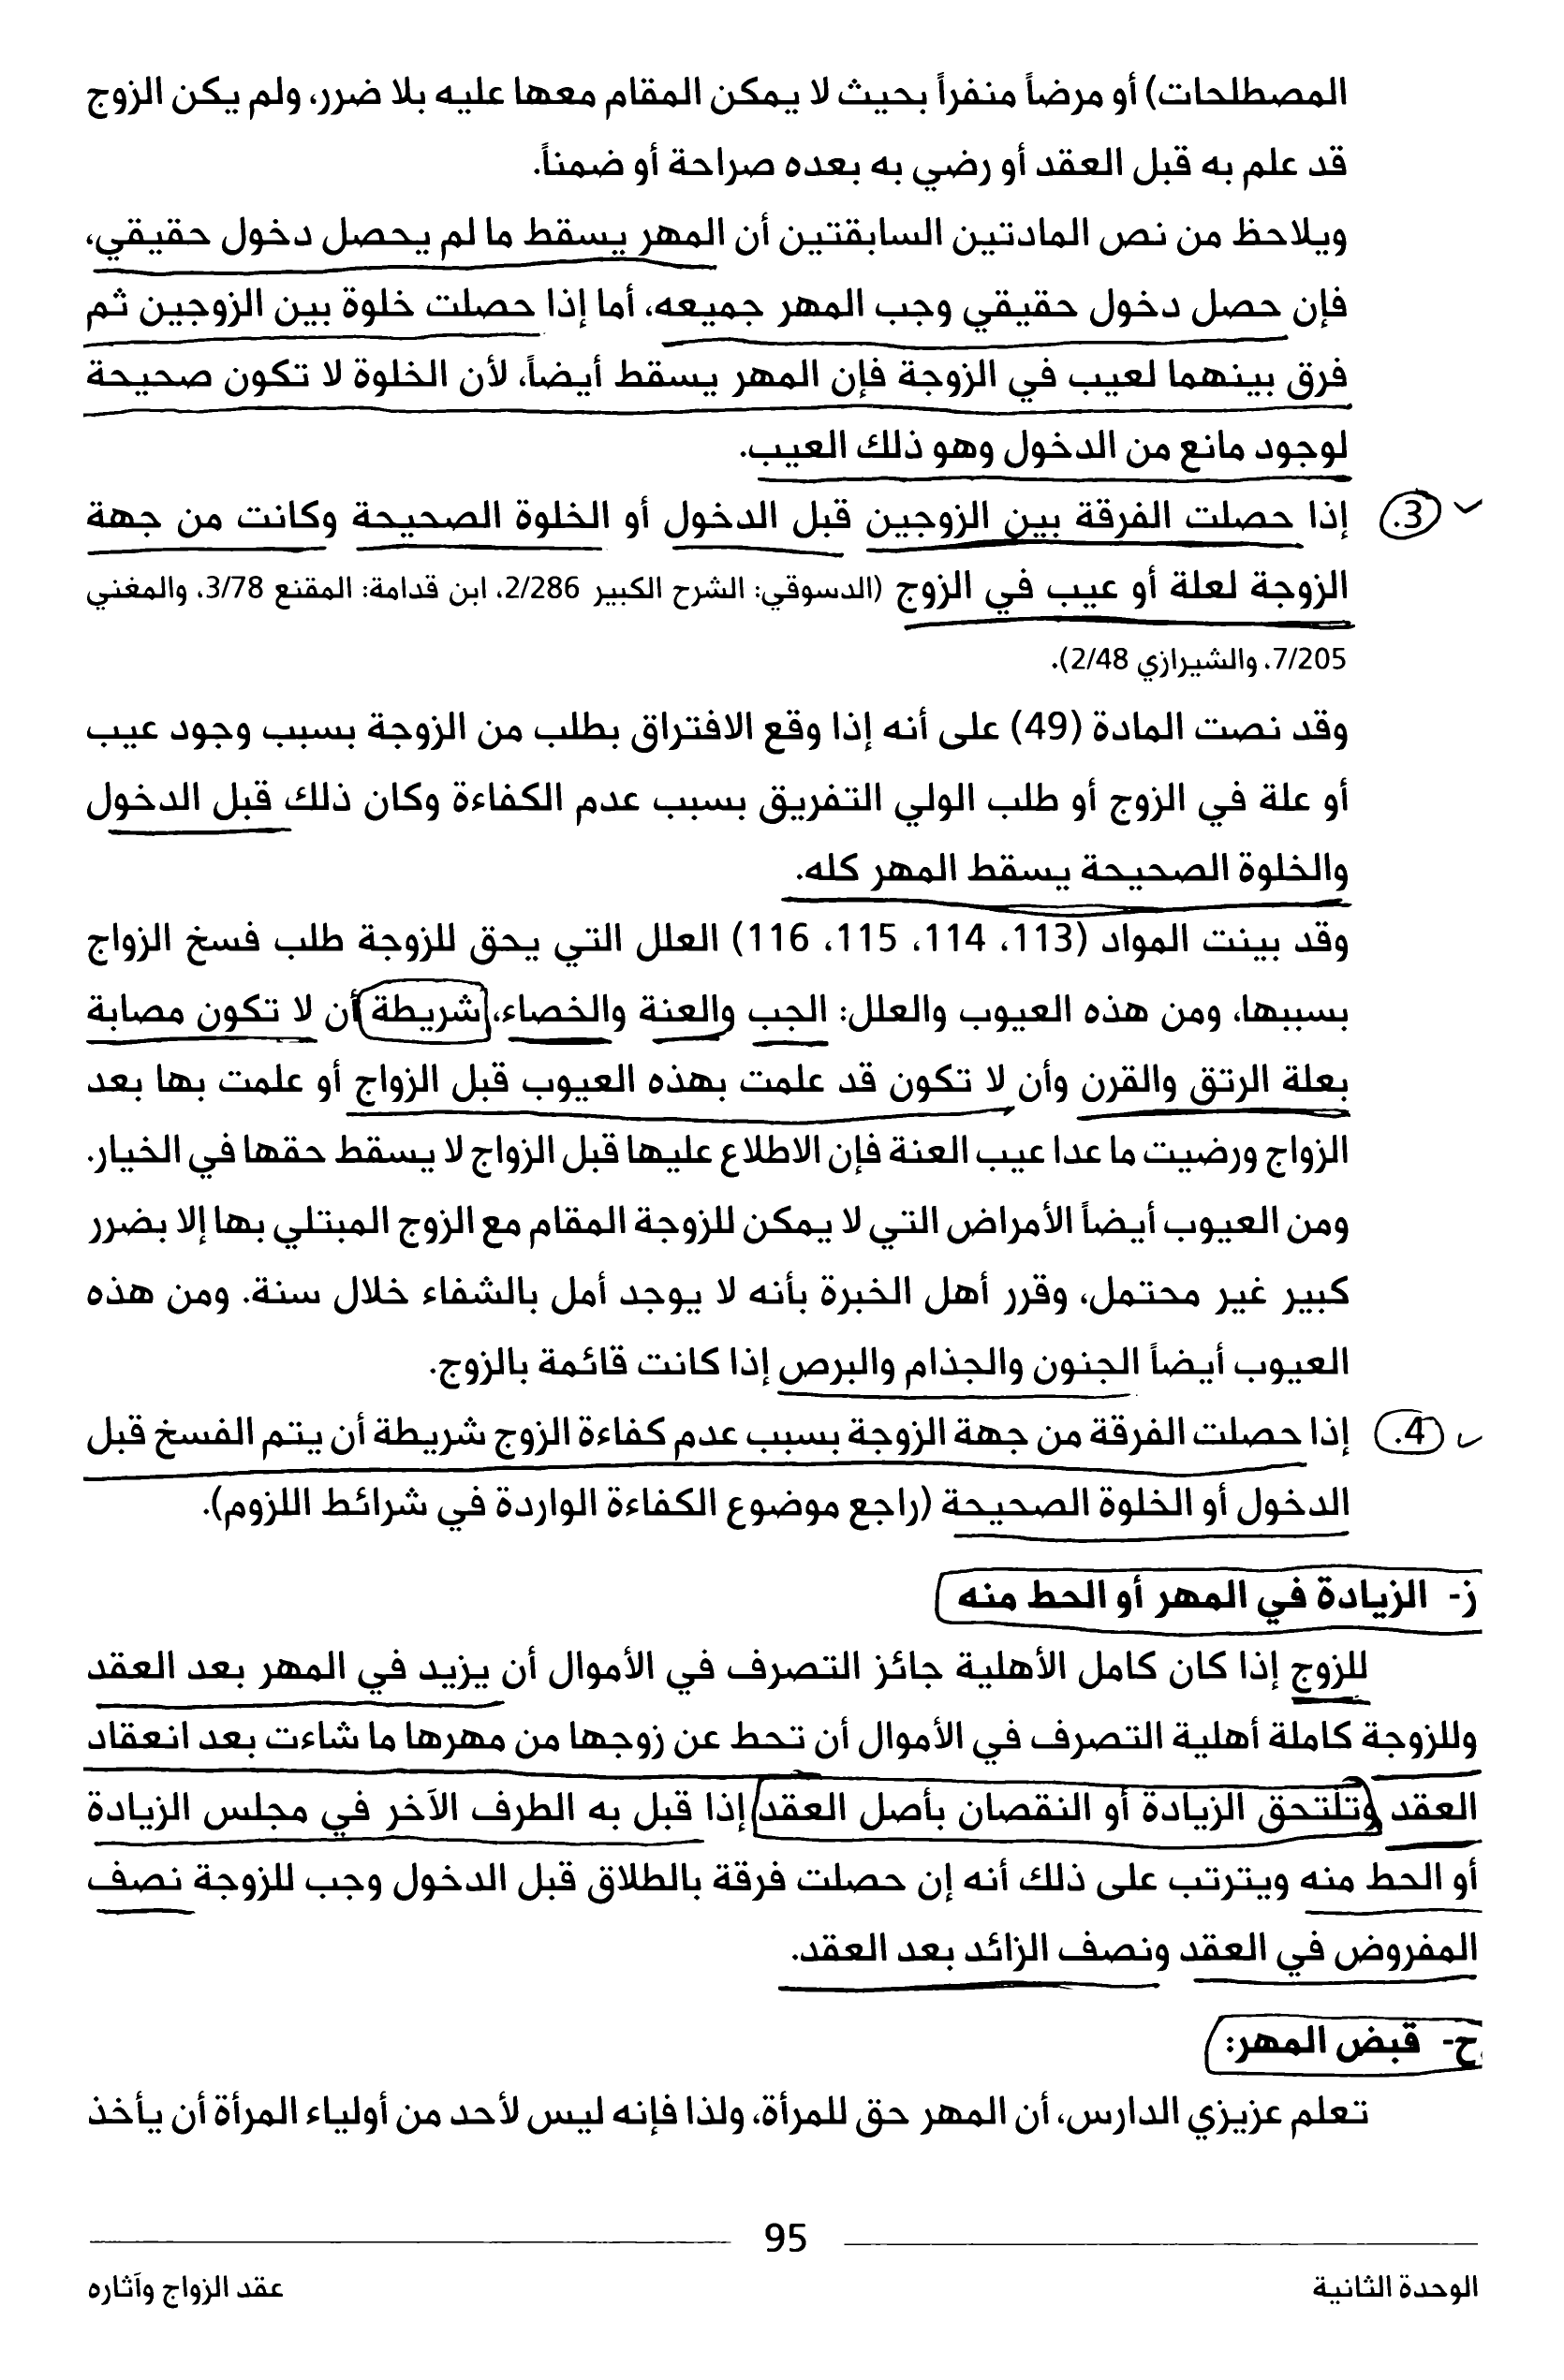 المصطلحات) أو مرضاً منفراً بحيث لا يمكن المقام معها عليه بلا ضرر، ولم يكن الزوج
قد علم به قبل العقد أو رضي به بعده صراحة أو ضمناً.
ويلاحظ من نص المادتين السابقتين أن المهر يسقط ما لم يحصل دخول حقيقي،
فإن حصل دخول حقيقي وجب المهر جميعه، أما إذا حصلت خلوة بين الزوجين ثم
فرق بينهما لعيب في الزوجة فإن المهر يسقط أيضاً، لأن الخلوة لا تكون صحيحة
لوجود مانع من الدخول وهو ذلك العيب.
3. إذا حصلت الفرقة بين الزوجين قبل الدخول أو الخلوة الصحيحة وكانت من جهة
الزوجة لعلة أو عيب في الزوج (الدسوقي: الشرح الكبير 2/286، ابن قدامة: المقنع 3/78، والمغني
7/205، والشيرازي 2/48).
وقد نصت المادة (49) على أنه إذا وقع الافتراق بطلب من الزوجة بسبب وجود عيب
أو علة في الزوج أو طلب الولي التفريق بسبب عدم الكفاءة وكان ذلك قبل الدخول
والخلوة الصحيحة يسقط المهر كله.
وقد بينت المواد (113، 114، 115، 116) العلل التي يحق للزوجة طلب فسخ الزواج
بسببها، ومن هذه العيوب والعلل: الجب والعنة والخصاء، شريطة أن لا تكون مصابة
بعلة الرتق والقرن وأن لا تكون قد علمت بهذه العيوب قبل الزواج أو علمت بها بعد
الزواج ورضيت ما عدا عيب العنة فإن الاطلاع عليها قبل الزواج لا يسقط حقها في الخيار.
ومن العيوب أيضاً الأمراض التي لا يمكن للزوجة المقام مع الزوج المبتلي بها إلا بضرر
كبير غير محتمل، وقرر أهل الخبرة بأنه لا يوجد أمل بالشفاء خلال سنة. ومن هذه
العيوب أيضاً الجنون والجذام والبرص إذا كانت قائمة بالزوج.
4. إذا حصلت الفرقة من جهة الزوجة بسبب عدم كفاءة الزوج شريطة أن يتم الفسخ قبل
الدخول أو الخلوة الصحيحة (راجع موضوع الكفاءة الواردة في شرائط اللزوم).
ز- الزيادة في المهر أو الحط منه
للزوج إذا كان كامل الأهلية جائز التصرف في الأموال أن يزيد في المهر بعد العقد
وللزوجة كاملة أهلية التصرف في الأموال أن تحط عن زوجها من مهرها ما شاءت بعد انعقاد
العقد وتلتحق الزيادة أو النقصان بأصل العقد إذا قبل به الطرف الآخر في مجلس الزيادة
أو الحط منه ويترتب على ذلك أنه إن حصلت فرقة بالطلاق قبل الدخول وجب للزوجة نصف
المفروض في العقد ونصف الزائد بعد العقد.
ح- قبض المهر:
تعلم عزيزي الدارس، أن المهر حق للمرأة، ولذا فإنه ليس لأحد من أولياء المرأة أن يأخذ
95
الوحدة الثانية
عقد الزواج وآثاره